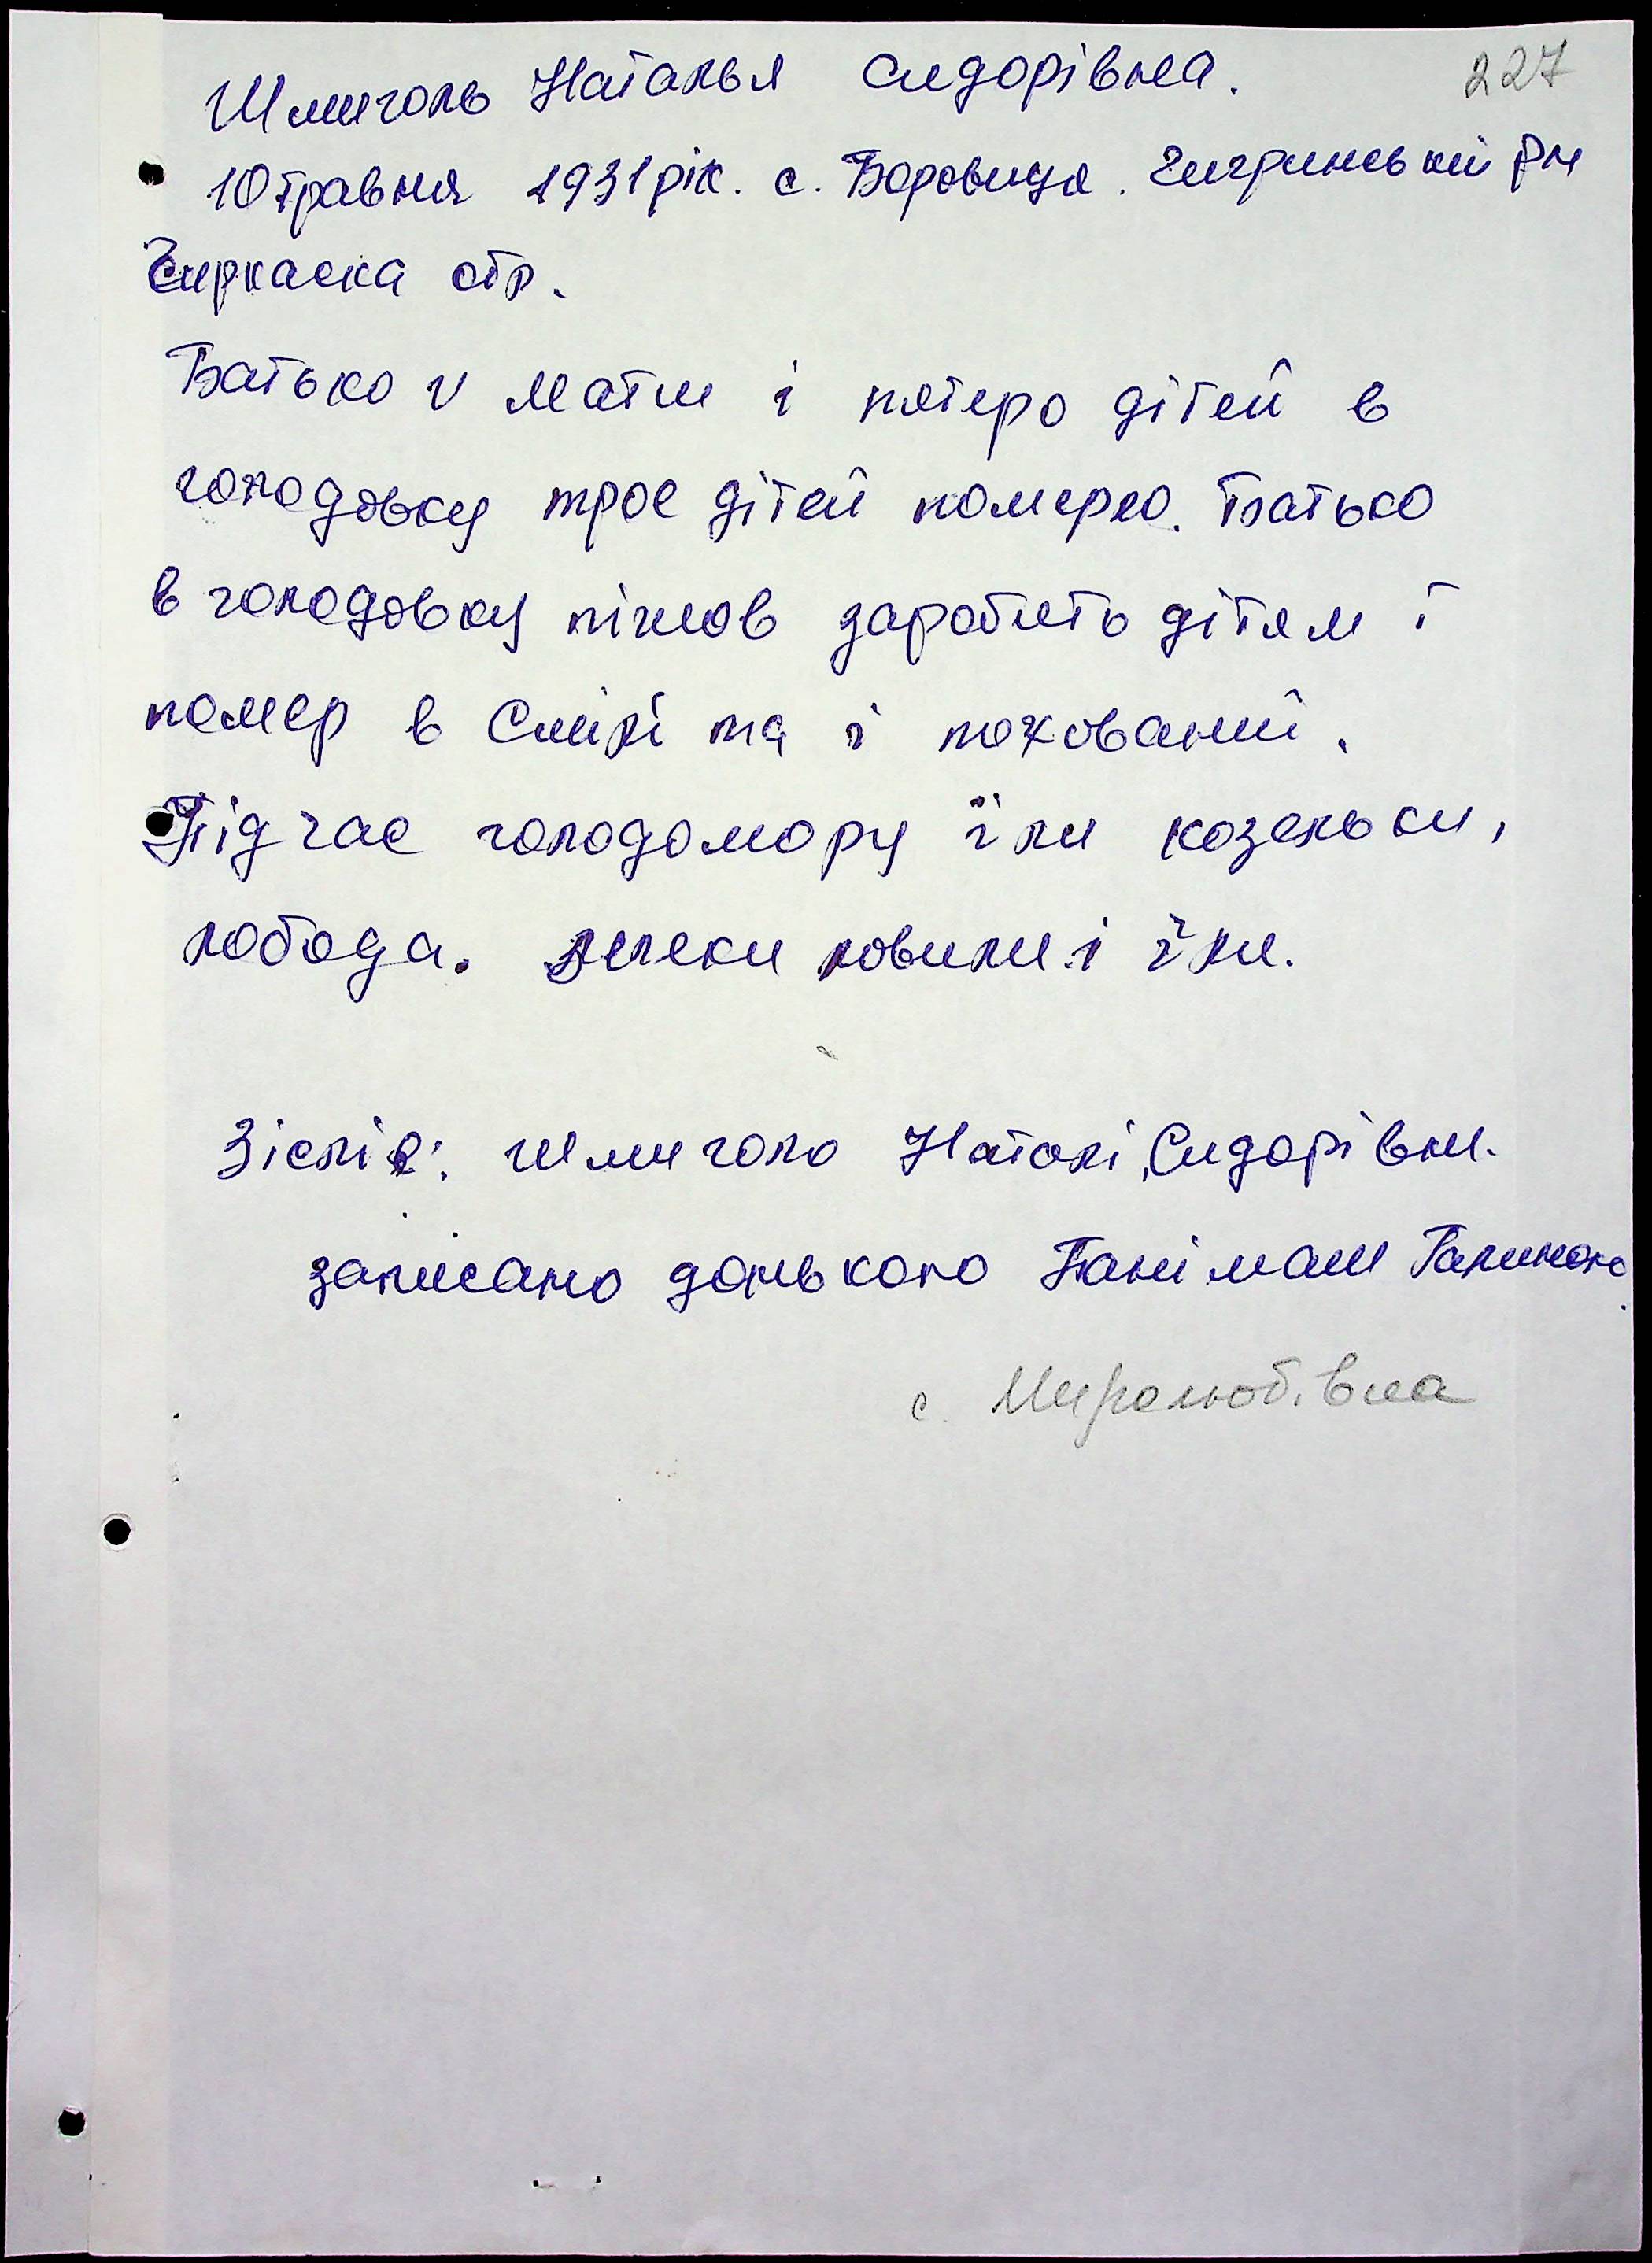 Шмиголь Наталья Сидорівна. 227
10 травня 1931 рік. с. Боровиця. Чигринський рн
Черкаска обл.
Батько v мати і пятеро дітей в
голодовку трое дітей померло. Батько
в голодовку пішов заробить дітям і
помер в Смілі та і похований.
Під час голодомору їли козельки,
лобода. лелеки ловили і їли.
Зіслів: Шмиголо Наталі Сидорівни.
записано донькою Галиною
с. Миролюбівка